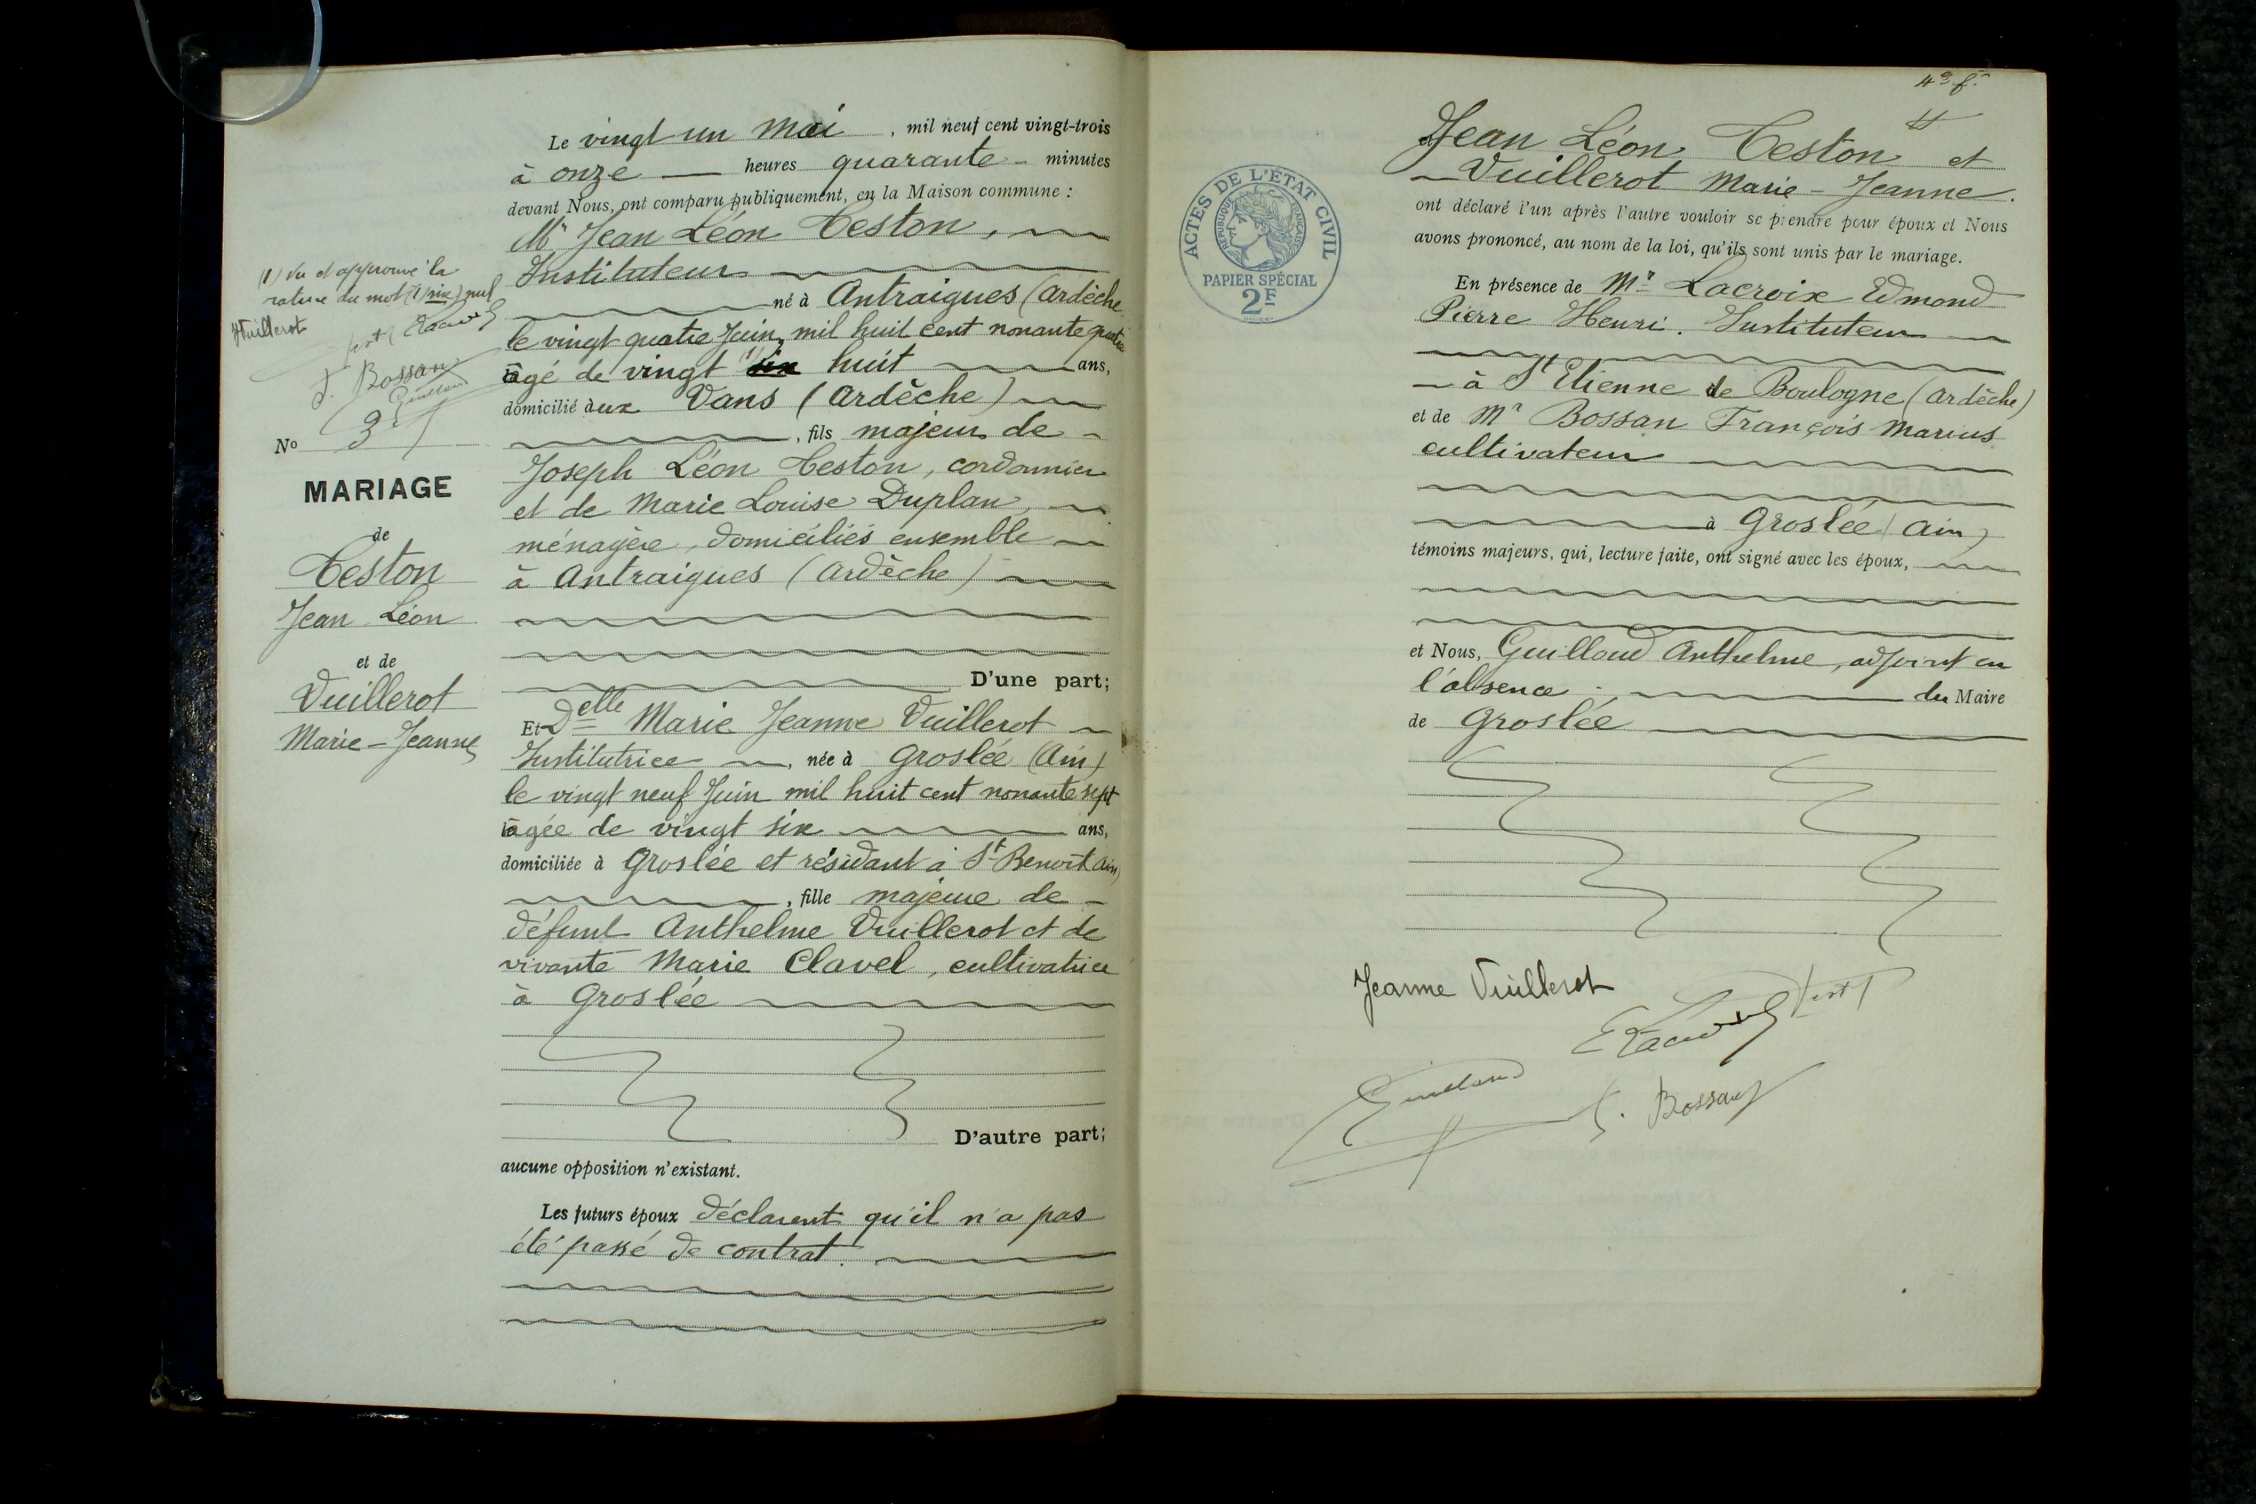 Le vingt un Mai , mil neuf cent vingt-trois
à onze heures quarante minutes
devant Nous, ont comparu publiquement, en la Maison commune :
Mr Jean Léon Teston,
Instituteur
né à Antraigues (Ardèche
le vingt quatre Juin mil huit cent nonante quatre
âgé de vingt (1) six huit ans,
domicilié aux Vans (Ardèche)
, fils majeur de
Joseph Léon Teston, cordonnier
et de Marie Louise Duplan,
ménagère, domiciliés ensemble
à Antraigues (Ardèche)
D'une part;
Et Delle Marie Jeanne Vuillerot
Institutrice , née à Groslée (Ain)
le vingt neuf Juin mil huit cent nonante sept
âgée de vingt six ans,
domiciliée à Groslée et résidant à St Benoît Ain)
, fille majeure de
défunt Anthelme Vuillerot et de
vivante Marie Clavel, cultivatrice
à Groslée
D'autre part;
aucune opposition n'existant.
Les futurs époux déclarent qu'il n'a pas
été passé de contrat.
(1) Vu et approuvé la
rature du mot (1) six) nul
JVuillerot
J. Bossan
Guilland
No 3
MARIAGE
de
Teston
Jean Léon
et de
Vuillerot
Marie-Jeanne
4e f.
Jean Léon Teston et
Vuillerot Marie-Jeanne.
ont déclaré l'un après l'autre vouloir se prendre pour époux et Nous
avons prononcé, au nom de la loi, qu'ils sont unis par le mariage.
En présence de Mr Lacroix Edmond
Pierre Henri. Instituteur
à St Etienne de Boulogne (Ardèche)
et de Mr Bossan François Marius
cultivateur
à Groslée (Ain)
témoins majeurs, qui, lecture faite, ont signé avec les époux,
et Nous, Guilland Anthelme, adjoint en
l'absence du Maire
de Groslée
ACTES DE L'ÉTAT CIVIL
RÉPUBLIQUE FRANÇAISE
PAPIER SPÉCIAL
2F
Jeanne Vuillerot
Guilland
Bossan